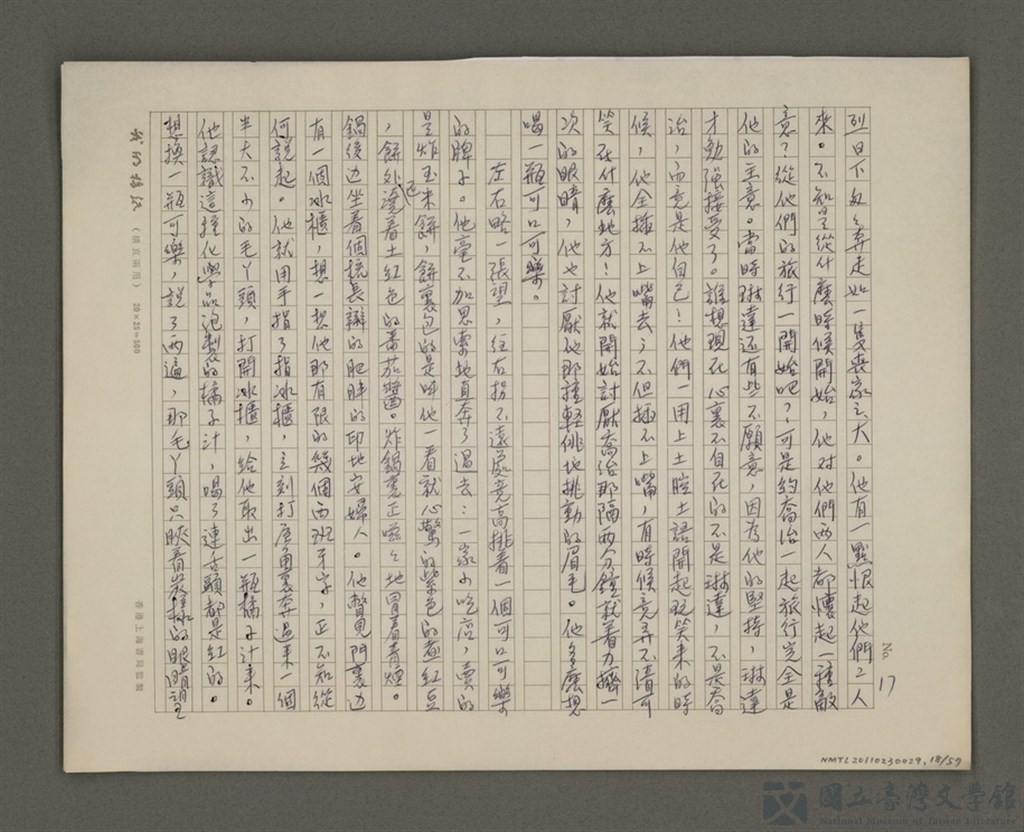 No. 17
烈日下匆匆奔走如一隻喪家之犬。他有一點恨起他們二人
來。不知是從什麼時候開始,他对他們两人都懷起一種敵
意?從他們的旅行一開始吧?可是約喬治一起旅行完全是
他的主意。當時琳達还有些不願意,因為他的堅持,琳達
才勉強接受了。誰想現在心裏不自在的不是琳達,不是喬
治,而竟是他自己!他們一用上土腔土語開起玩笑來的時
候,他全插不上嘴去;不但插不上嘴,有時候竟弄不清可
笑在什麼地方!他就開始討厭喬治那隔两分鐘就着力擠一
次的眼睛,他也討厭他那種輕佻地挑動的眉毛。他多麼想
喝一瓶可口可樂。
左右略一張望,往右拐不遠處竟高挑着一個可口可樂
的牌子。他毫不加思索地直奔了過去:一家小吃店,賣的
是炸玉米餅,餅裏包的是叫他一看就心驚的紫色的煮紅豆
,餅外还澆着土紅色的蕃茄醬。炸鍋裏正嗞嗞地冒着青煙。
鍋後边坐着個梳長辮的肥胖的印地安婦人。他瞥見門裏边
有一個冰櫃,想一想他那有限的幾個西班牙字,正不知從
何説起。他就用手指了指冰櫃,立刻打屋角裏奔過來一個
半大不小的毛丫頭,打開冰櫃,給他取出一瓶橘子汁來。
他認識這種化學品泡製的橘子汁,喝了連舌頭都是紅的。
想換一瓶可樂,説了两遍,那毛丫頭只䀹着炭樣的眼睛望
(橫直兩用) 20×25=500
香港上海書局監製
NMTL20110230029, 18/57
國立臺灣文學館
National Museum of Taiwan Literature